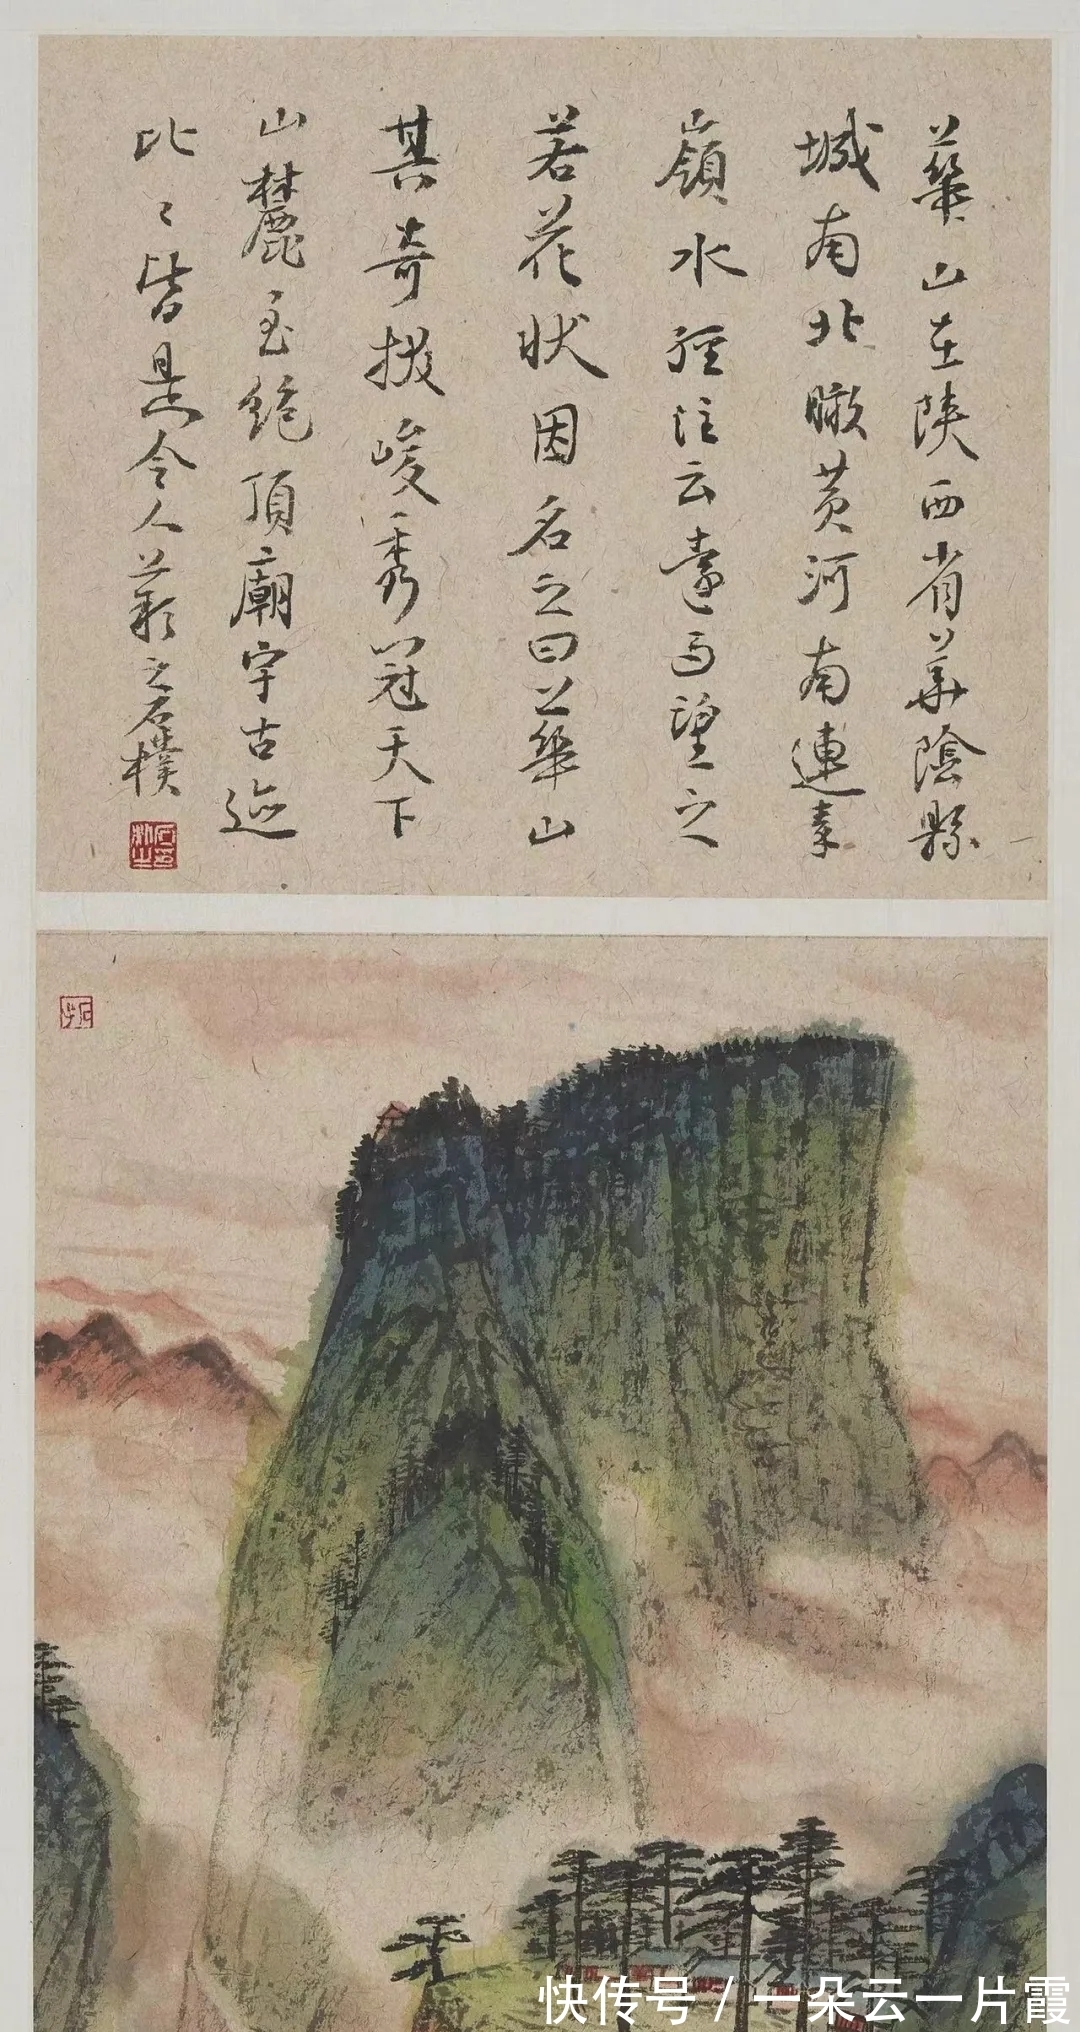 華山在陝西省華陰縣
城南北瞰黃河南連秦
嶺水經注云遠而望之
若花狀因名之曰華山
其奇拔峻秀冠天下
山麓至絕頂廟宇古迹
比〻皆是令人之石樸
快传号 / 一朵云一片霞